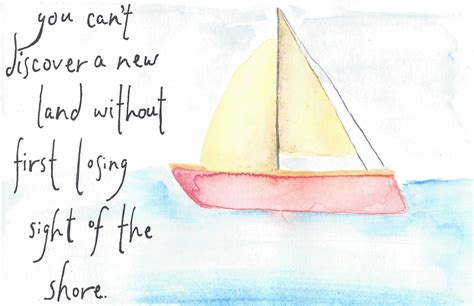 you can't
discover a new
land without
first losing
sight of the
shore.